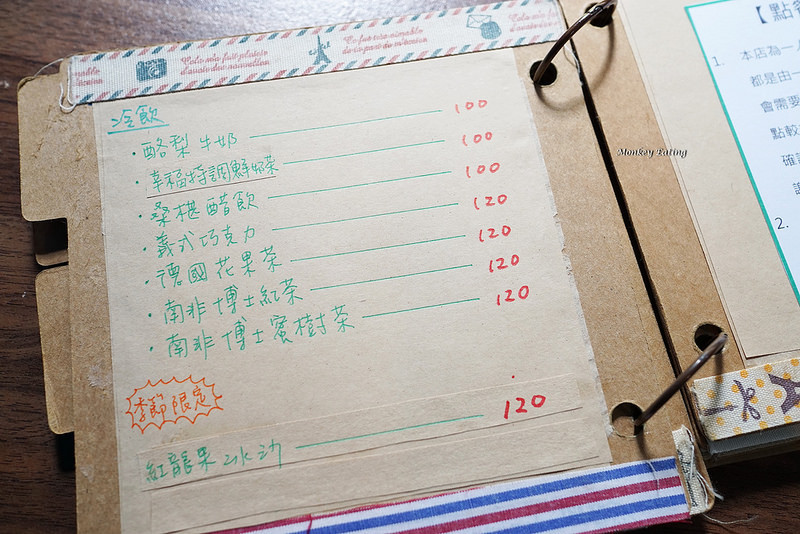 冷飲
・酪梨牛奶 100
・幸福特調鮮奶茶 100
・桑椹醋飲 100
・義式巧克力 120
・德國花果茶 120
・南非博士紅茶 120
・南非博士蜜樹茶 120
季節限定
紅龍果冰沙 120
Monkey Eating
【點餐
1. 本店為一人
都是由一
會需要
點較
確認
2.